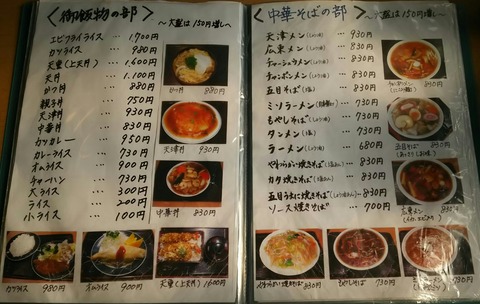 御飯物の部
～大盛は150円増し～
エビフライライス … 1,700円
カツライス … 980円
天重(上天丼) … 1,600円
天丼 … 1,100円
かつ丼 … 880円
親子丼 … 750円
天津丼 … 930円
中華丼 … 830円
カツカレー … 950円
カレーライス … 730円
オムライス … 900円
チャーハン … 730円
大ライス … 300円
ライス … 200円
小ライス … 100円
かつ丼 880円
天津丼 930円
中華丼 830円
カツライス 980円
オムライス 900円
天重(上天丼) 1600円
中華そばの部
～大盛は150円増し～
天津メン(しょうゆ味) … 930円
広東メン(しょうゆ味) … 830円
チャーシュウメン(しょうゆ味) … 830円
チャンポンメン(しょうゆ味) … 830円
五目そば(塩) … 830円
ミソラーメン … 730円
もやしそば(しょうゆ味) … 730円
タンメン(塩) … 730円
ラーメン … 680円
やわらかい焼きそば … 830円
カタ焼きそば … 830円
五目うまに焼きそば … 830円
ソース焼きそば … 700円
チャンポンメン 830円
五目そば 830円
(あっさりしお味)
広東メン 830円
やわらかい焼きそば 830円
もやしそば 730円